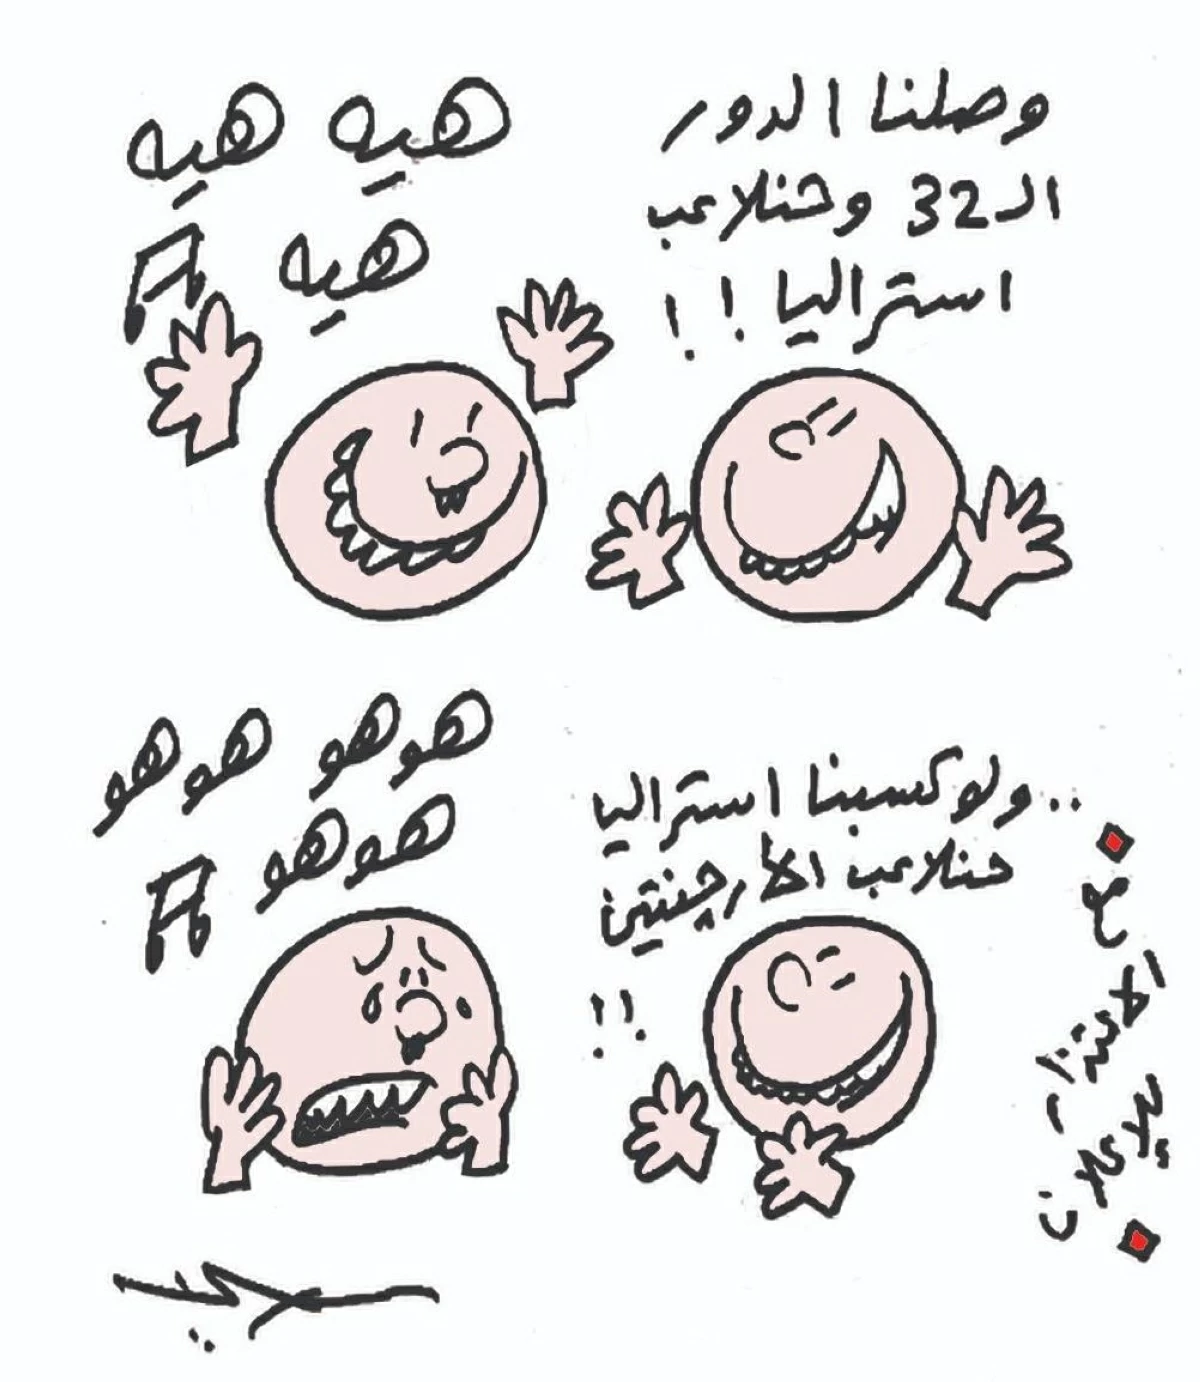 وصلنا الدور
الـ 32 وحنلاعب
استراليا !!
هيه هيه
هيه
.. ولو كسبنا استراليا
حنلاعب الأرجنتين
!!
هوهو هوهو
هوهو
مع
الاعتذار
للإعلان